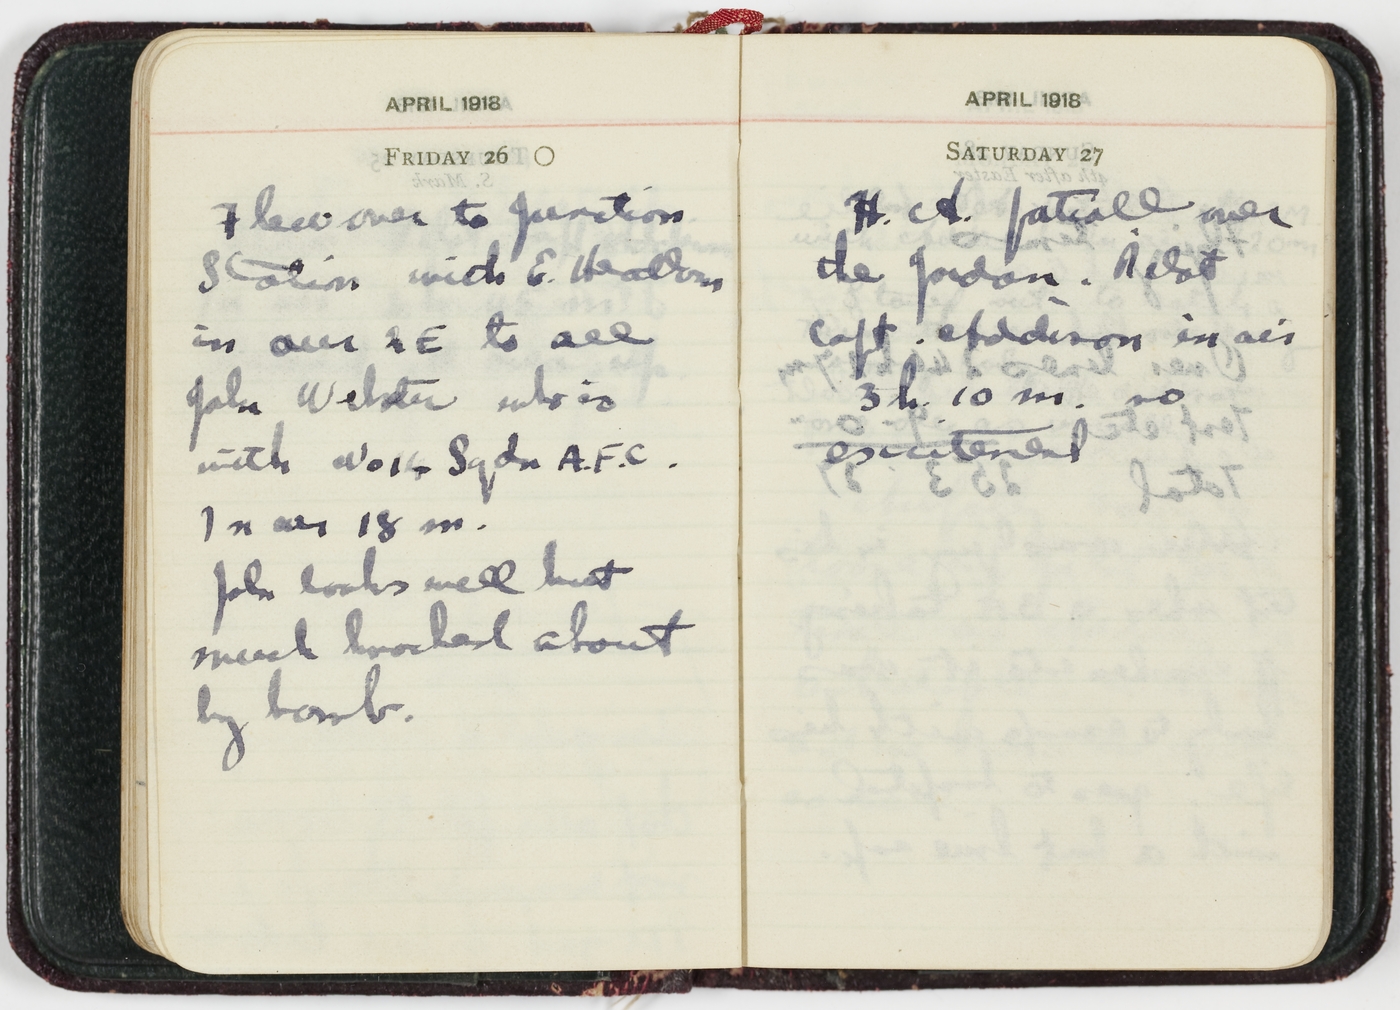 APRIL 1918
FRIDAY 26
Flew over to Junction
Station with E. Headlam
in our RE to see
John Webster who is
with No 14 Sqdn A.F.C.
In air 18 m.
John looks well but
much knocked about
by bomb.
APRIL 1918
SATURDAY 27
H. A. patroll over
the Jordan. Pilot
Capt. Addison in air
3 h. 10 m. no
excitement